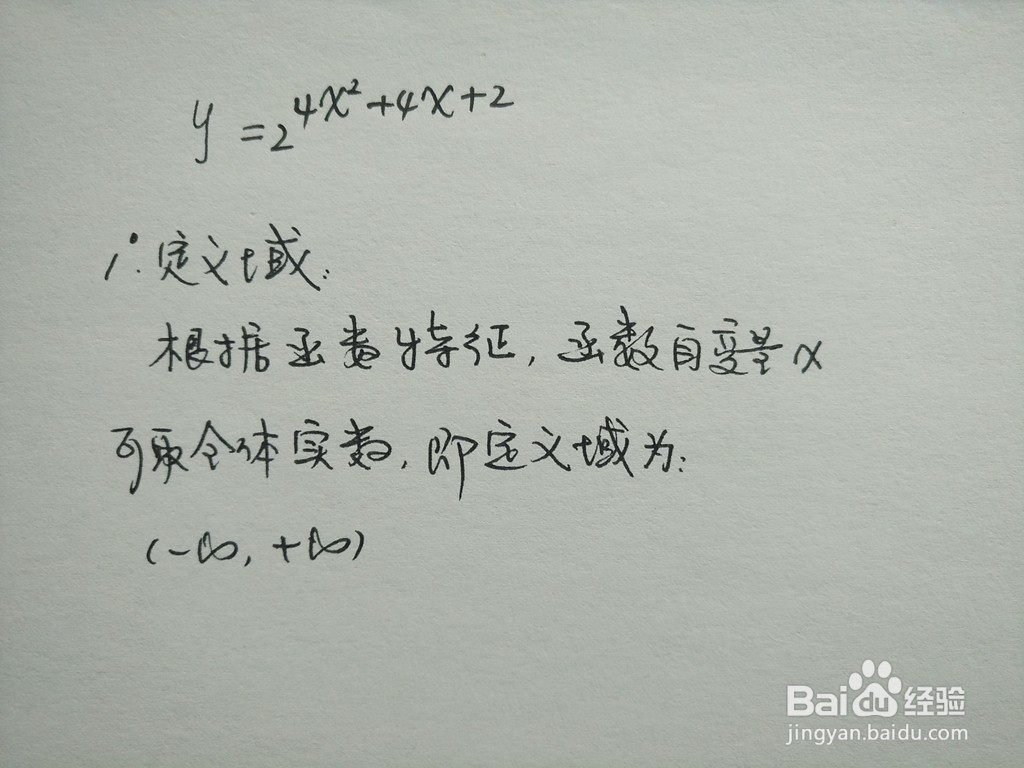 y = 2^{4x²+4x+2}
1°. 定义域:
根据函数特征, 函数自变量x
可取全体实数, 即定义域为:
(-∞, +∞)
Bai du 经验
jingyan.baidu.com